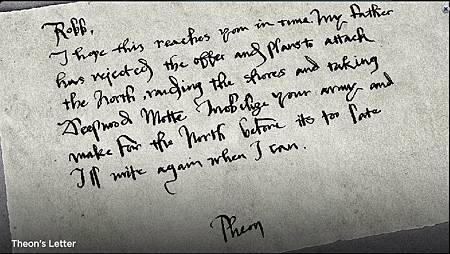 Robb,
I hope this reaches you in time. My father
has rejected the offer and plans to attack
the North, raiding the shores and taking
Deepwood Motte. Mobilize your army and
make for the North before its too late
I'll write again when I can.
Theon
Theon's Letter